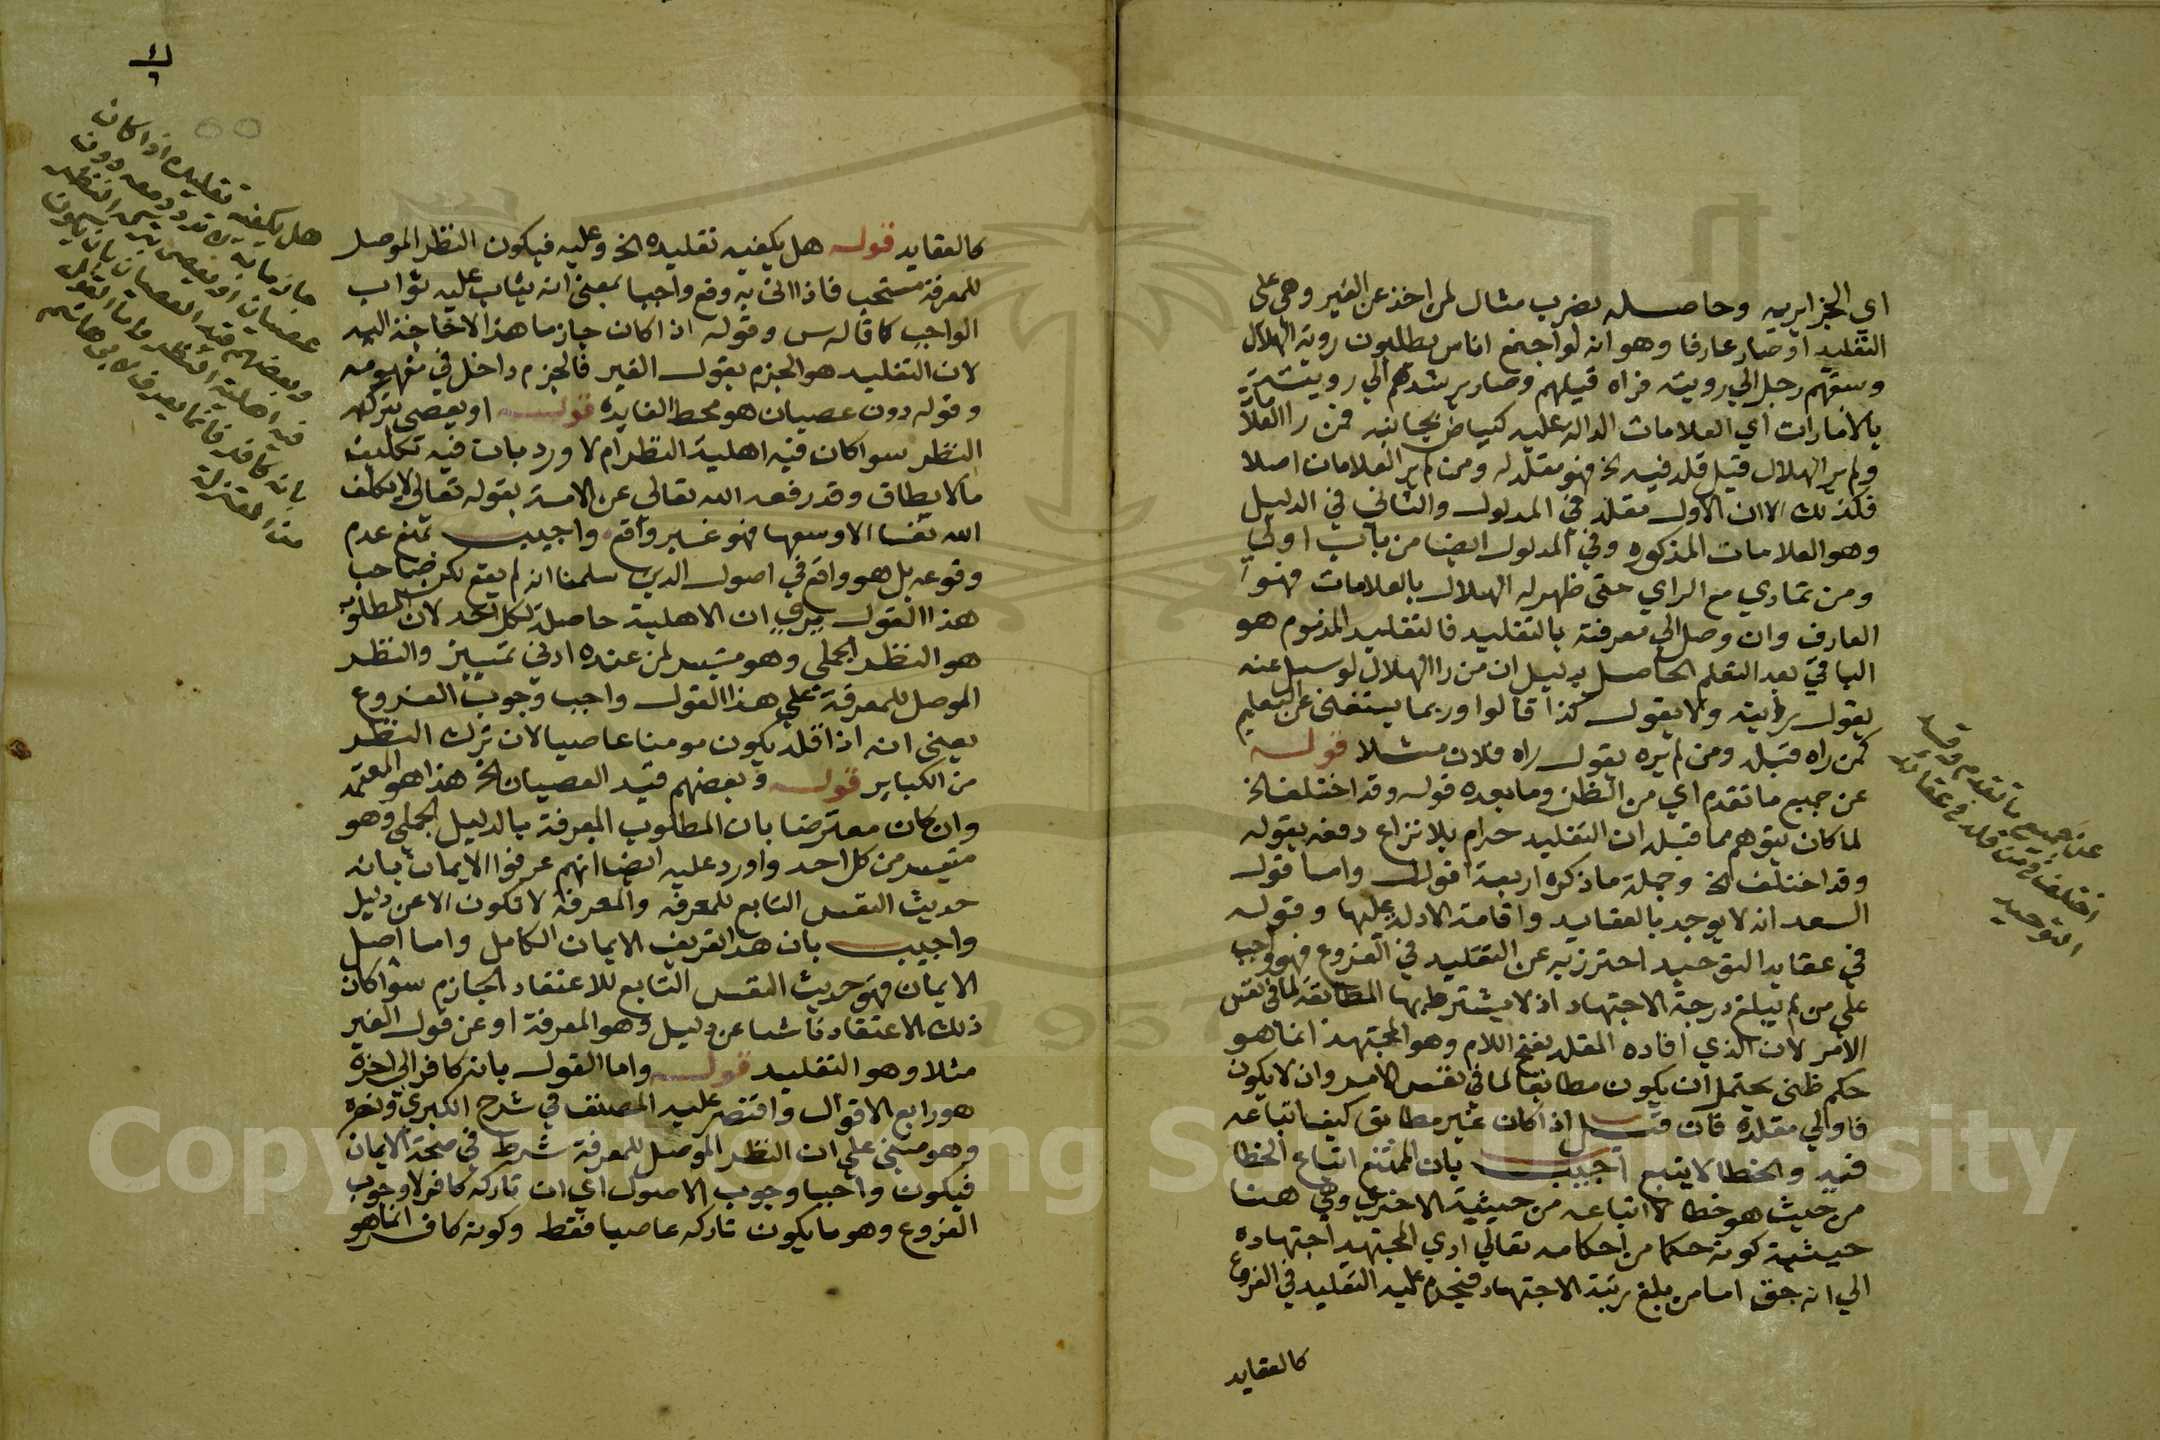 اي الجزايريه وحاصله يضرب مثال لمن اخذ عن الغير وهي على
التقليد او صار عارفا وهو انه لو اجتمع اناس يطلبون روية الهلال
وسبقهم رجل الي رويته فراه قبلهم وصار يرشدهم الي رويته
بالامارات اي العلامات الداله عليه كبياض بجانبه فمن را العلا
ولم ير الهلال قبل قلد فيه الخ فهو مقلد له ومن لم ير العلامات اصلا
فكذلك الا ان الاول مقلد في المدلول والثاني في الدليل
وهو العلامات المذكوره وفي المدلول ايضا من باب اولي
ومن تمادي مع الراي حتى ظهر له الهلال بالعلامات فهو
العارف وان وصل الي معرفته بالتقليد فالتقليد المذموم هو
الباقي بعد التعلم الحاصل بدليل ان من را الهلال لو سيل عنه
يقول رايته ولا يقول كذا قالوا وربما يستغنى عن التعليم
كمن راه قبله ومن لم يره يقول راه فلان مثلا قوله
عن جميع ما تقدم اي من الظن وما بعده قوله وقد اختلف الخ
لما كان يتوهم مما قبله ان التقليد حرام بلا نزاع دفعه بقوله
وقد اختلف الخ وجملة ما ذكره اربعة اقوال واما قول
السعد انه لا يوجد بالعقايد واقامة الادلة عليها وقوله
في عقايد التوحيد احترز به عن التقليد في الفروع فهو واجب
علي من لم يبلغ درجة الاجتهاد اذ لا يشترط بها المطابقة لما في نفس
الامر لان الذي افاده المقلد بفتح اللام وهو المجتهد انما هو
حكم ظنى يحتمل ان يكون مطابقا لما في نفس الامر وان لا يكون
فاولي مقلده فان قيل اذا كان غير مطابق كيف اتباعه
فيه والخطا لا يتبع اجيب بان الممتنع اتباع الخطا
من حيث هو خطا لا اتباعه من حيثية الاخري وهي هنا
حيثية كونه حكما من احكامه تعالي ادي المجتهد اجتهاده
الي انه حق اما من بلغ رتبة الاجتهاد فيحرم عليه التقليد في الفروع
كالعقايد
عن جميع ما تقدم وقد
اختلف في من قلد في عقايد
التوحيد
كالعقايد قوله هل يكفيه تقليده الخ وعليه فيكون النظر الموصل
للمعرفة مستحب فاذا اتى به وقع واجبا بمعنى انه يثاب عليه ثواب
الواجب كما قاله س وقوله اذا كان جازما هذا لا حاجة اليه
لان التقليد هو الجزم بقول الغير فالجزم داخل في مفهومه
وقوله دون عصيان هو محط الفايده قوله او يعصي بتركه
النظر سوا كان فيه اهلية النظر ام لا ورد بات فيه تكليف
ما لا يطاق وقد رفعه الله تعالي عن الامة بقوله تعالي لا يكلف
الله نفسا الا وسعها فهو غير واقع واجيب بمنع عدم
وقوعه بل هو واقع في اصول الدين سلمنا انه لم يقع لكن صاحب
هذا القول يري ان الاهلية حاصلة لكل احد لان المطلوب
هو النظر الجملي وهو متيسر لمن عنده ادني تمييز والنظر
الموصل للمعرفة علي هذا القول واجب وجوب الفروع
يعني انه اذا قلد يكون مومنا عاصيا لان ترك النظر
من الكباير قوله وبعضهم قيد العصيان الخ هذا هو المعتمد
وان كان معترضا بان المطلوب المعرفة بالدليل الجملي وهو
متيسر من كل احد واورد عليه ايضا انهم عرفوا الايمان بانه
حديث النفس التابع للمعرفه والمعرفة لا تكون الا عن دليل
واجيب بان هذا تعريف الايمان الكامل واما اصل
الايمان فهو حديث النفس التابع للاعتقاد الجازم سوا كان
ذلك الاعتقاد ناشا عن دليل وهو المعرفة او عن قول الغير
مثلا وهو التقليد قوله واما القول بانه كافر الى اخره
هو رابع الاقوال واقتصر عليه المصنف في شرح الكبري ونصره
وهو مبني علي ان النظر الموصل للمعرفة شرط في صحة الايمان
فيكون واجبا وجوب الاصول اي ان تاركه كافر لا وجوب
الفروع وهو ما يكون تاركه عاصيا فقط وكونه كافر انما هو
هل يكفيه تقليده اذا كان
جازما به من تردد معه دون
عصيان او يعصي بترك النظر
وبعضهم قيد العصيان بان يكون
فيه اهلية النظر واما القول
بانه كافر فانما يعرف لابي هاشم
من المعتزلة
1957
Copyright © King Saud University